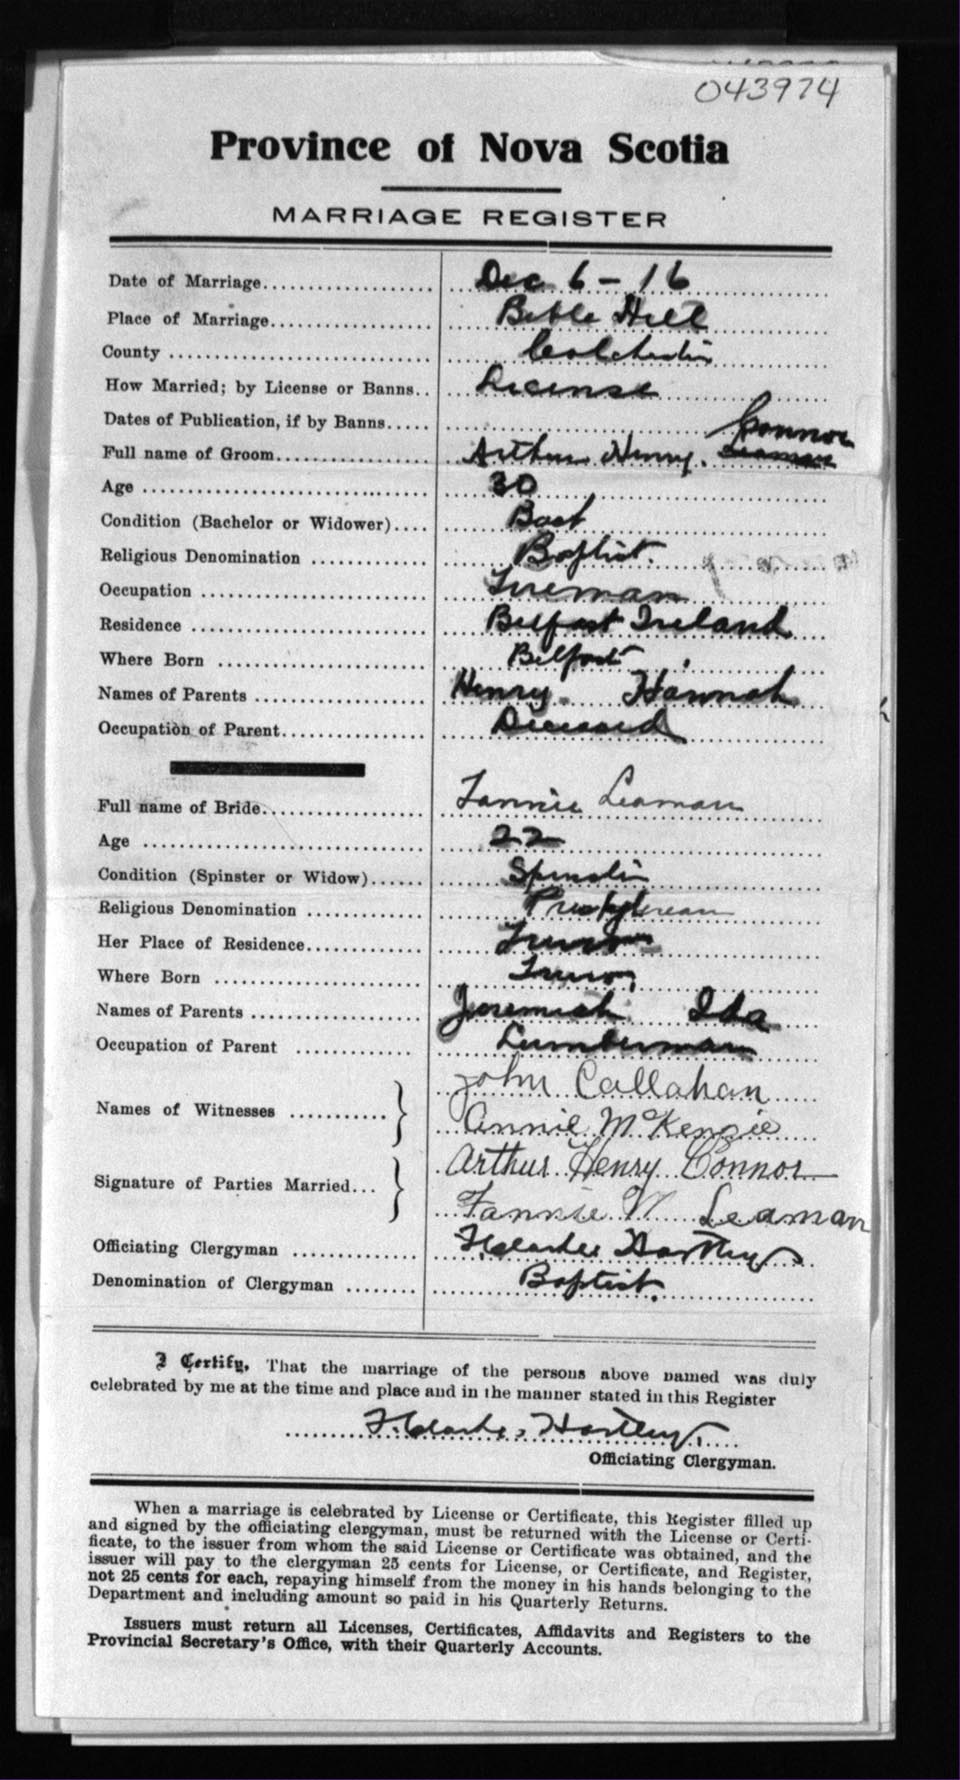 043974
Province of Nova Scotia
MARRIAGE REGISTER
Date of Marriage Dec 6 - 16
Place of Marriage Bible Hill
County Colchester
How Married; by License or Banns License
Dates of Publication, if by Banns
Connor
Full name of Groom Arthur Henry Leaman
Age 30
Condition (Bachelor or Widower) Bach
Religious Denomination Baptist.
Occupation Fireman
Residence Belfast Ireland
Where Born Belfast
Names of Parents Henry Hannah
Occupation of Parent Deceased
Full name of Bride Fannie Leaman
Age 22
Condition (Spinster or Widow) Spinster
Religious Denomination Presbyterean
Her Place of Residence Truro
Where Born Truro
Names of Parents Jeremiah Ida
Occupation of Parent Lumberman
Names of Witnesses John Callahan
Annie McKenzie
Signature of Parties Married Arthur Henry Connor
Fannie M Leaman
Officiating Clergyman F. Clarke Hartley
Denomination of Clergyman Baptist.
I Certify, That the marriage of the persons above named was duly
celebrated by me at the time and place and in the manner stated in this Register
F. Clarke Hartley.
Officiating Clergyman.
When a marriage is celebrated by License or Certificate, this Register filled up
and signed by the officiating clergyman, must be returned with the License or Certi-
ficate, to the issuer from whom the said License or Certificate was obtained, and the
issuer will pay to the clergyman 25 cents for License, or Certificate, and Register,
not 25 cents for each, repaying himself from the money in his hands belonging to the
Department and including amount so paid in his Quarterly Returns.
Issuers must return all Licenses, Certificates, Affidavits and Registers to the
Provincial Secretary's Office, with their Quarterly Accounts.